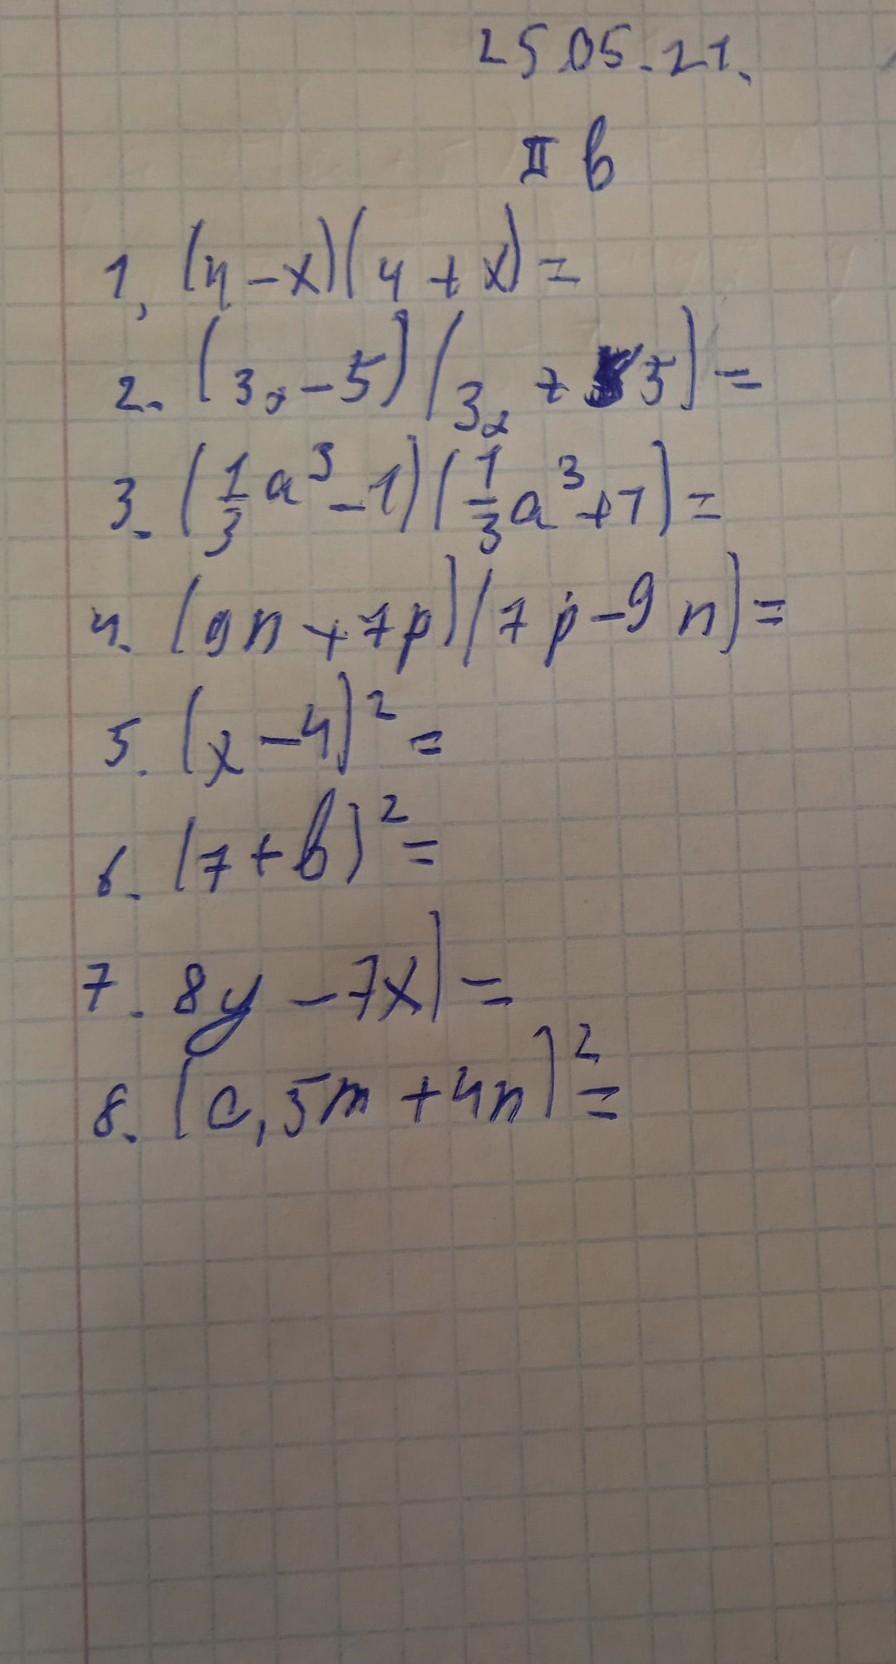 25.05.21.
II в
1, (4-x)(4+x)=
2. (3x-5)(3x+5)=
3. (1/3 a³-1)(1/3 a³+1)=
4. (9n+7p)(7p-9n)=
5. (x-4)²=
6. (7+b)²=
7. 8y-7x)=
8. (0,5m+4n)²=